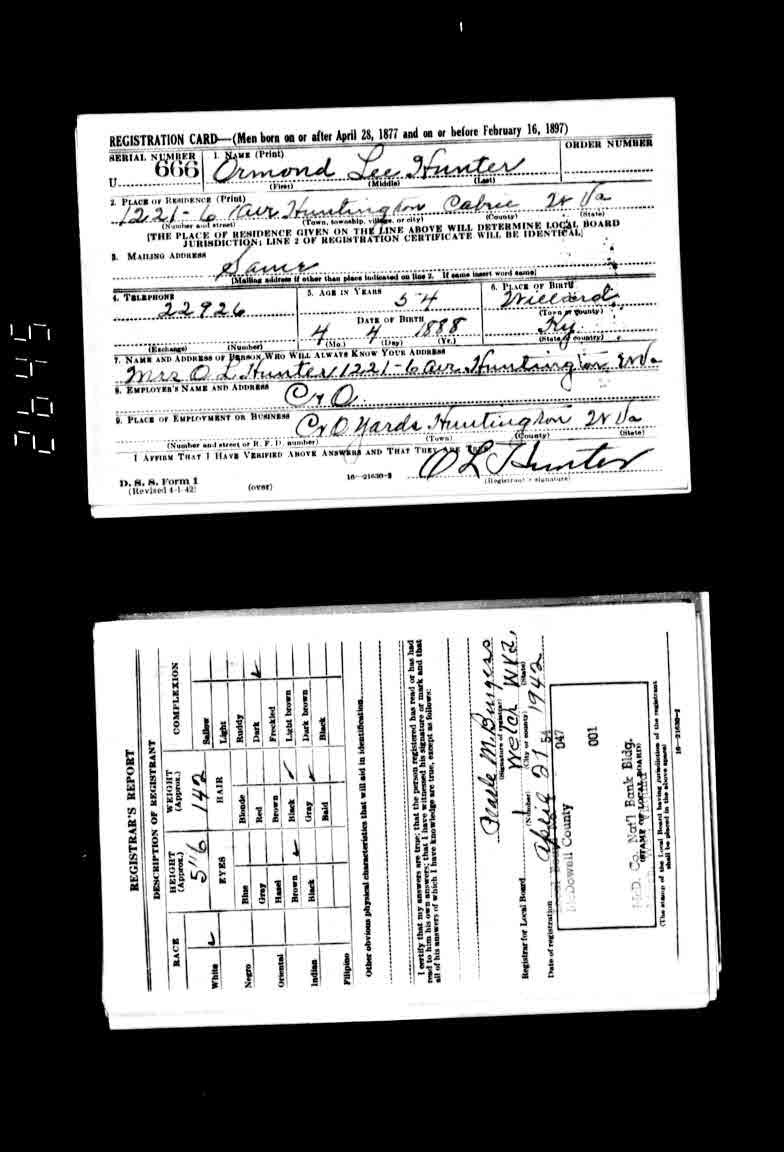 REGISTRATION CARD—(Men born on or after April 28, 1877 and on or before February 16, 1897)
SERIAL NUMBER 1. NAME (Print) ORDER NUMBER
U 666 Ormond Lee Hunter
(First) (Middle) (Last)
2. PLACE OF RESIDENCE (Print)
1221-6 Ave Huntington Cabell W Va
(Number and street) (Town, township, village, or city) (County) (State)
[THE PLACE OF RESIDENCE GIVEN ON THE LINE ABOVE WILL DETERMINE LOCAL BOARD
JURISDICTION; LINE 2 OF REGISTRATION CERTIFICATE WILL BE IDENTICAL]
3. MAILING ADDRESS
Same
[Mailing address if other than place indicated on line 2. If same insert word same]
4. TELEPHONE 5. AGE IN YEARS 6. PLACE OF BIRTH
22926 54 Willard
DATE OF BIRTH (Town or county)
4 4 1888 Ky
(Exchange) (Number) (Mo.) (Day) (Yr.) (State or country)
7. NAME AND ADDRESS OF PERSON WHO WILL ALWAYS KNOW YOUR ADDRESS
Mrs O L Hunter 1221-6 Ave Huntington W Va
8. EMPLOYER'S NAME AND ADDRESS
C & O.
9. PLACE OF EMPLOYMENT OR BUSINESS
C & O Yards Huntington W Va
(Number and street or R. F. D. number) (Town) (County) (State)
I AFFIRM THAT I HAVE VERIFIED ABOVE ANSWERS AND THAT THEY ARE TRUE.
O L Hunter
D. S. S. Form 1 (Registrant's signature)
(Revised 4-1-42) (over) 16—21630-2
2645
REGISTRAR'S REPORT
DESCRIPTION OF REGISTRANT
RACE HEIGHT (Approx.) WEIGHT (Approx.) COMPLEXION
5'6 142
EYES HAIR
White Blue Blonde Sallow
Light
Negro Gray Red Ruddy
Dark
Oriental Hazel Brown Freckled
Brown Black Light brown
Indian Black Gray Dark brown
Bald Black
Filipino
Other obvious physical characteristics that will aid in identification
I certify that my answers are true; that the person registered has read or has had
read to him his own answers; that I have witnessed his signature or mark and that
all of his answers of which I have knowledge are true, except as follows:
Pearle M. Burgess
(Signature of registrar)
Registrar for Local Board Welch W Va.
(Number) (City or county) (State)
Date of registration April 27 1942
54
047
McDowell County
001
McD. Co. Nat'l Bank Bldg.
(STAMP OF LOCAL BOARD)
(The stamp of the Local Board having jurisdiction of the registrant
shall be placed in the above space)
16—21630-2